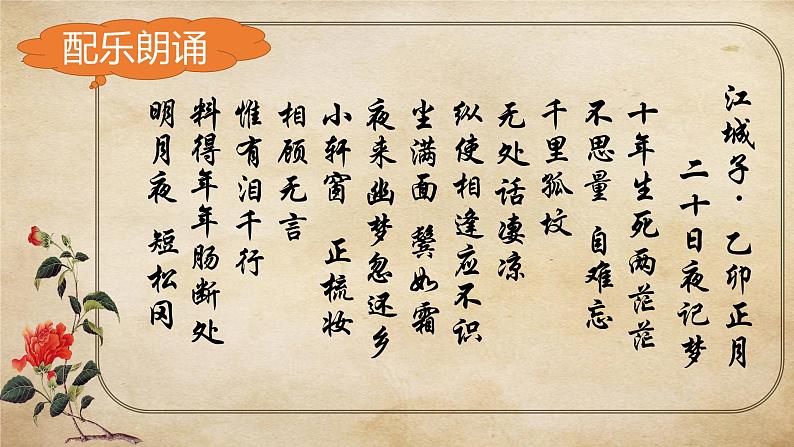 配乐朗诵
江城子·乙卯正月
二十日夜记梦
十年生死两茫茫
不思量 自难忘
千里孤坟
无处话凄凉
纵使相逢应不识
尘满面 鬓如霜
夜来幽梦忽还乡
小轩窗 正梳妆
相顾无言
惟有泪千行
料得年年肠断处
明月夜 短松冈